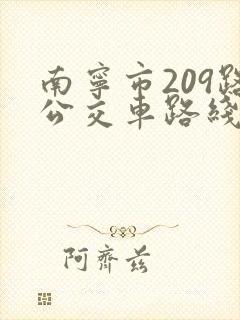 南寧市209路
公交車路綫
阿齊茲